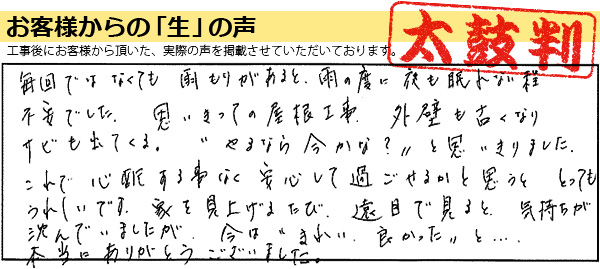 お客様からの「生」の声
工事後にお客様から頂いた、実際の声を掲載させていただいております。
太鼓判
毎回ではなくても雨もりがあると、雨の度に夜も眠れない程
不安でした。思いきっての屋根工事。外壁も古くなり
サビも出てくる。"やるなら今かな?"と思いきりました。
これで心配する事なく安心して過ごせるかと思うと とっても
うれしいです。家を見上げるたび、遠目で見ると、気持ちが
沈んでいましたが、今は"きれい、良かった"と….
本当にありがとうございました。